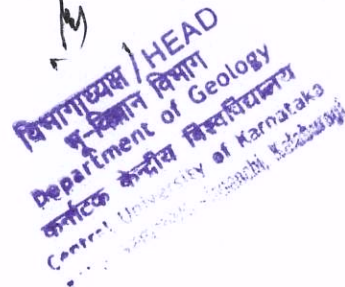 विभागाध्यक्ष / HEAD
भू-विज्ञान विभाग
Department of Geology
कर्नाटक केन्द्रीय विश्वविद्यालय
Central University of Karnataka
Kalaburagi